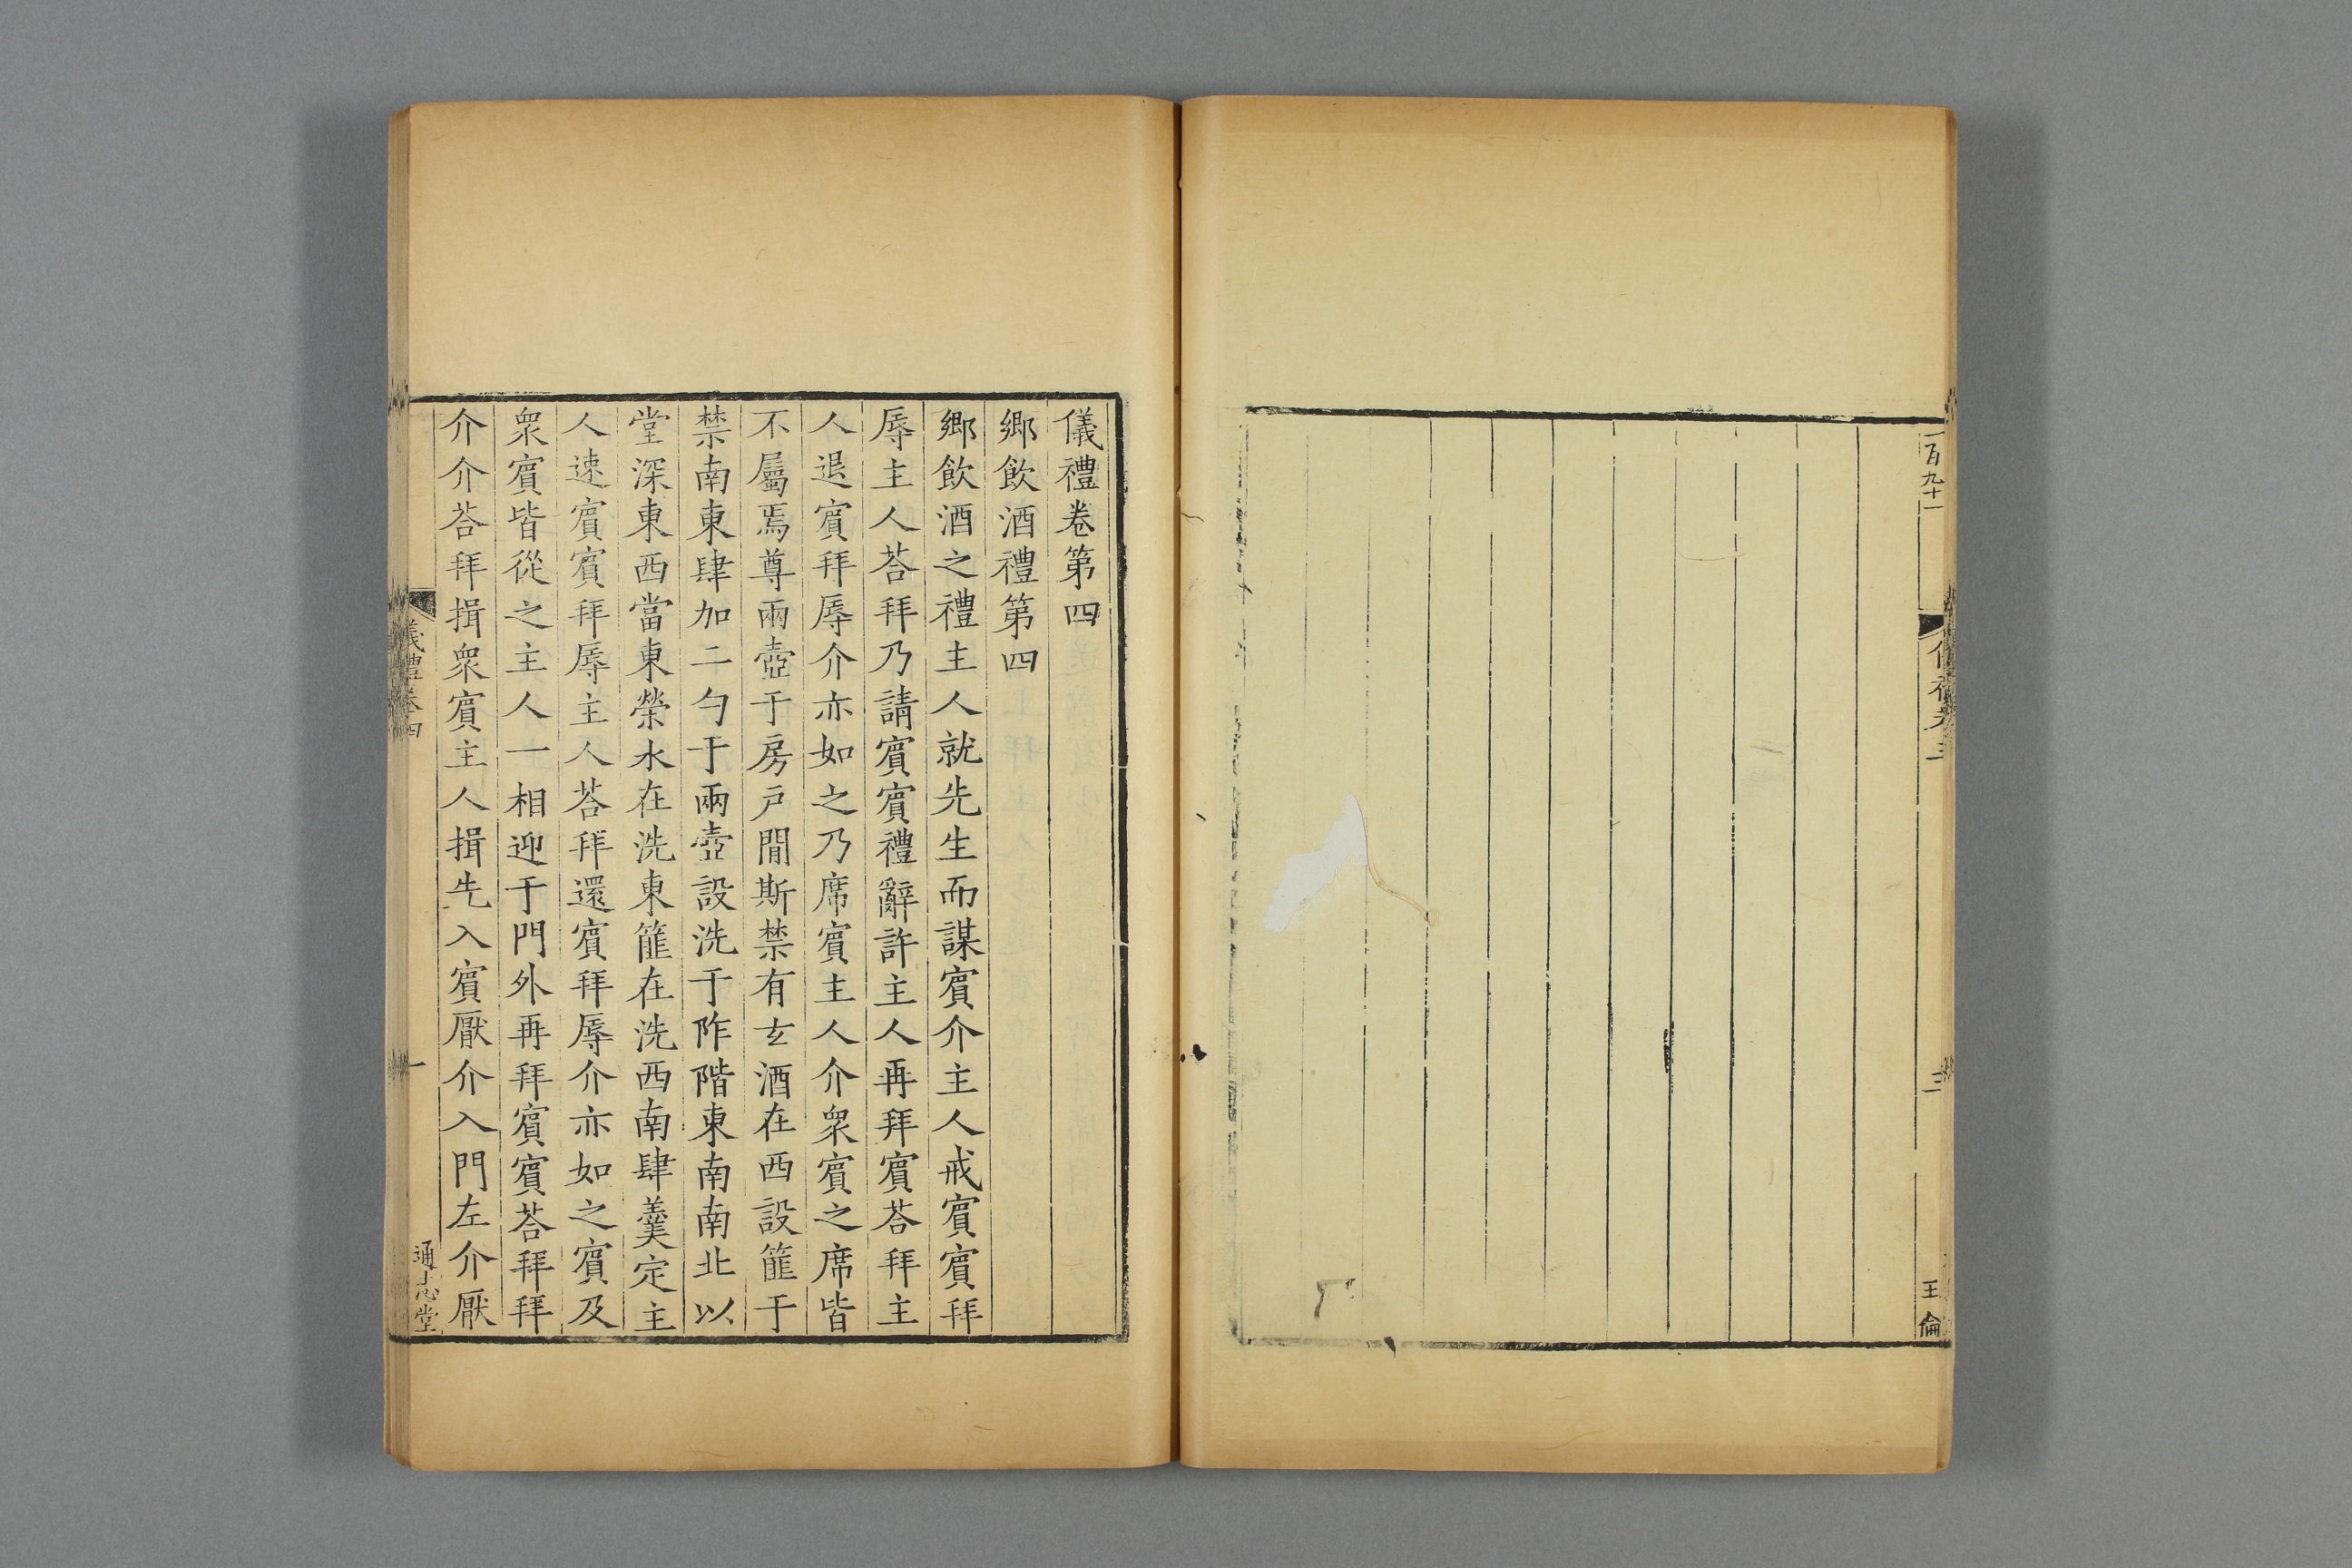 一百九十一
儀禮卷三
三
王倫
儀禮卷第四
鄉飲酒禮第四
鄉飲酒之禮主人就先生而謀賔介主人戒賔賔拜
辱主人荅拜乃請賔賔禮辭許主人再拜賔荅拜主
人退賔拜辱介亦如之乃席賔主人介衆賔之席皆
不屬焉尊兩壺于房戶閒斯禁有玄酒在西設篚于
禁南東肆加二勺于兩壺設洗于阼階東南南北以
堂深東西當東榮水在洗東篚在洗西南肆羹定主
人速賔賔拜辱主人荅拜還賔拜辱介亦如之賔及
衆賔皆從之主人一相迎于門外再拜賔賔荅拜拜
介介荅拜揖衆賔主人揖先入賔厭介入門左介厭
儀禮卷四
一
通志堂